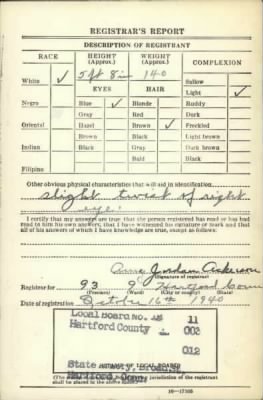 REGISTRAR'S REPORT
DESCRIPTION OF REGISTRANT
RACE HEIGHT (Approx.) WEIGHT (Approx.) COMPLEXION
White ✓ 5 ft 8 in 140 Sallow
EYES HAIR Light ✓
Negro Blue ✓ Blonde Ruddy
Gray Red Dark
Oriental Hazel Brown ✓ Freckled
Brown Black Light brown
Indian Black Gray Dark brown
Bald Black
Filipino
Other obvious physical characteristics that will aid in identification
slight twist of right
eye.
I certify that my answers are true; that the person registered has read or has had
read to him his own answers; that I have witnessed his signature or mark and that
all of his answers of which I have knowledge are true, except as follows:
Jordan
(Signature of registrar)
Registrar for 93 9 Hartford Conn
(Precinct) (Ward) (City or county) (State)
Date of registration October 16th 1940
Local Board No. 11
Hartford County 003
012
State
LOCAL BOARD
Hartford, Conn.
of the registrant
shall be placed in the above space.)